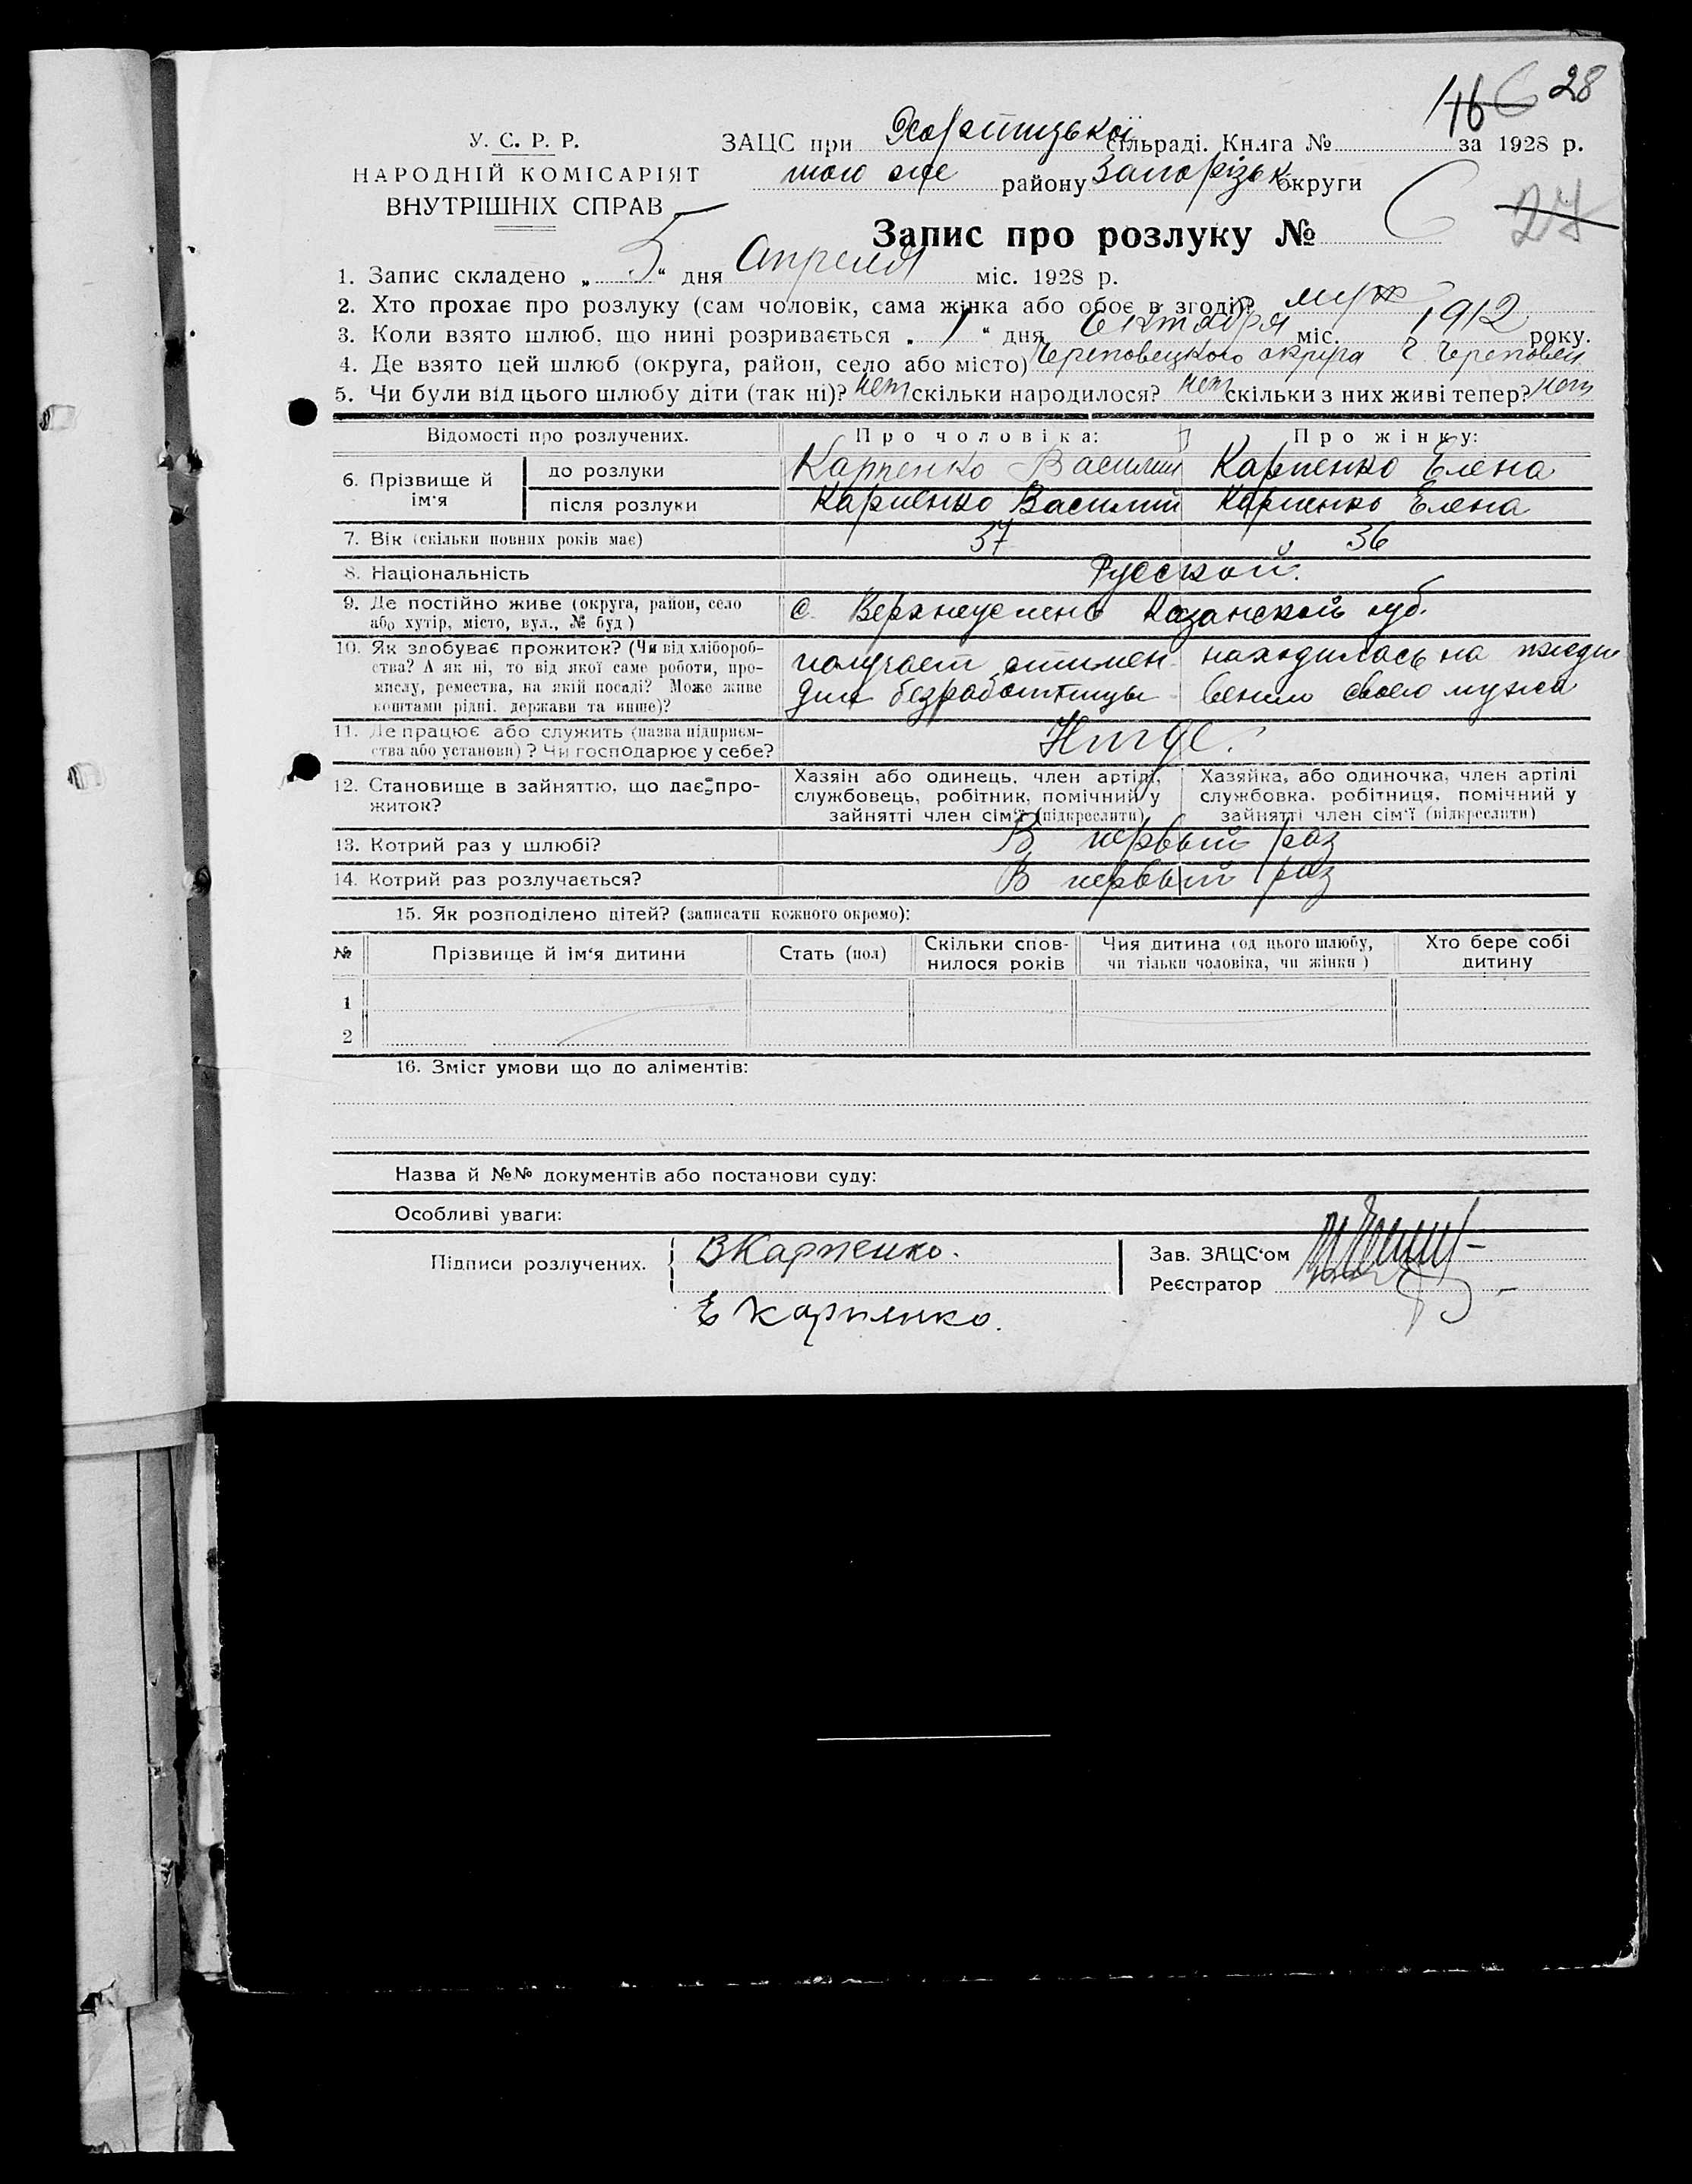 28
У. С. Р. Р.
НАРОДНІЙ КОМІСАРІЯТ
ВНУТРІШНІХ СПРАВ
ЗАЦС при Хортицької сільраді. Книга № за 1928 р.
того же району Запорізьк округи
Запис про розлуку № 6
27
1. Запис складено „ 5 “ дня Апреля міс. 1928 р.
2. Хто прохає про розлуку (сам чоловік, сама жінка або обоє в згоді)? муж
3. Коли взято шлюб, що нині розривається „ 1 “ дня Октября міс. 1912 року.
4. Де взято цей шлюб (округа, район, село або місто) Череповецкого округа г. Череповец
5. Чи були від цього шлюбу діти (так ні)? нет скільки народилося? нет скільки з них живі тепер? нет
Відомості про розлучених. Про чоловіка: Про жінку:
6. Прізвище й ім'я до розлуки Карпенко Василий Карпенко Елена
після розлуки Карпенко Василий Карпенко Елена
7. Вік (скільки повних років має) 37 36
8. Національність Русской.
9. Де постійно живе (округа, район, село
або хутір, місто, вул., № буд.) с. Верхнеуслено Казанской губ.
10. Як здобуває прожиток? (Чи від хлібороб-
ства? А як ні, то від якої саме роботи, про-
мислу, ремества, на якій посаді? Може живе
коштами рідні, держави та инше)?
получает стипен- находилась на ижди
дия безработицы вении своего мужа
11. Де працює або служить (назва підприєм-
ства або установи)? Чи господарює у себе? Нигде.
12. Становище в зайняттю, що дає про-
житок?
Хазяїн або одинець, член артілі,
службовець, робітник, помічний у
зайнятті член сім'ї (підкреслити)
Хазяйка, або одиночка, член артілі
службовка, робітниця, помічний у
зайнятті член сім'ї (підкреслити)
13. Котрий раз у шлюбі? В первый раз
14. Котрий раз розлучається? В первый раз
15. Як розподілено дітей? (записати кожного окремо):
№ Прізвище й ім'я дитини Стать (пол) Скільки спов-
нилося років Чия дитина (од цього шлюбу,
чи тільки чоловіка, чи жінки) Хто бере собі
дитину
1
2
16. Зміст умови що до аліментів:
Назва й №№ документів або постанови суду:
Особливі уваги:
Підписи розлучених. ВКарпенко.
Е Карпенко.
Зав. ЗАЦС'ом
Реєстратор